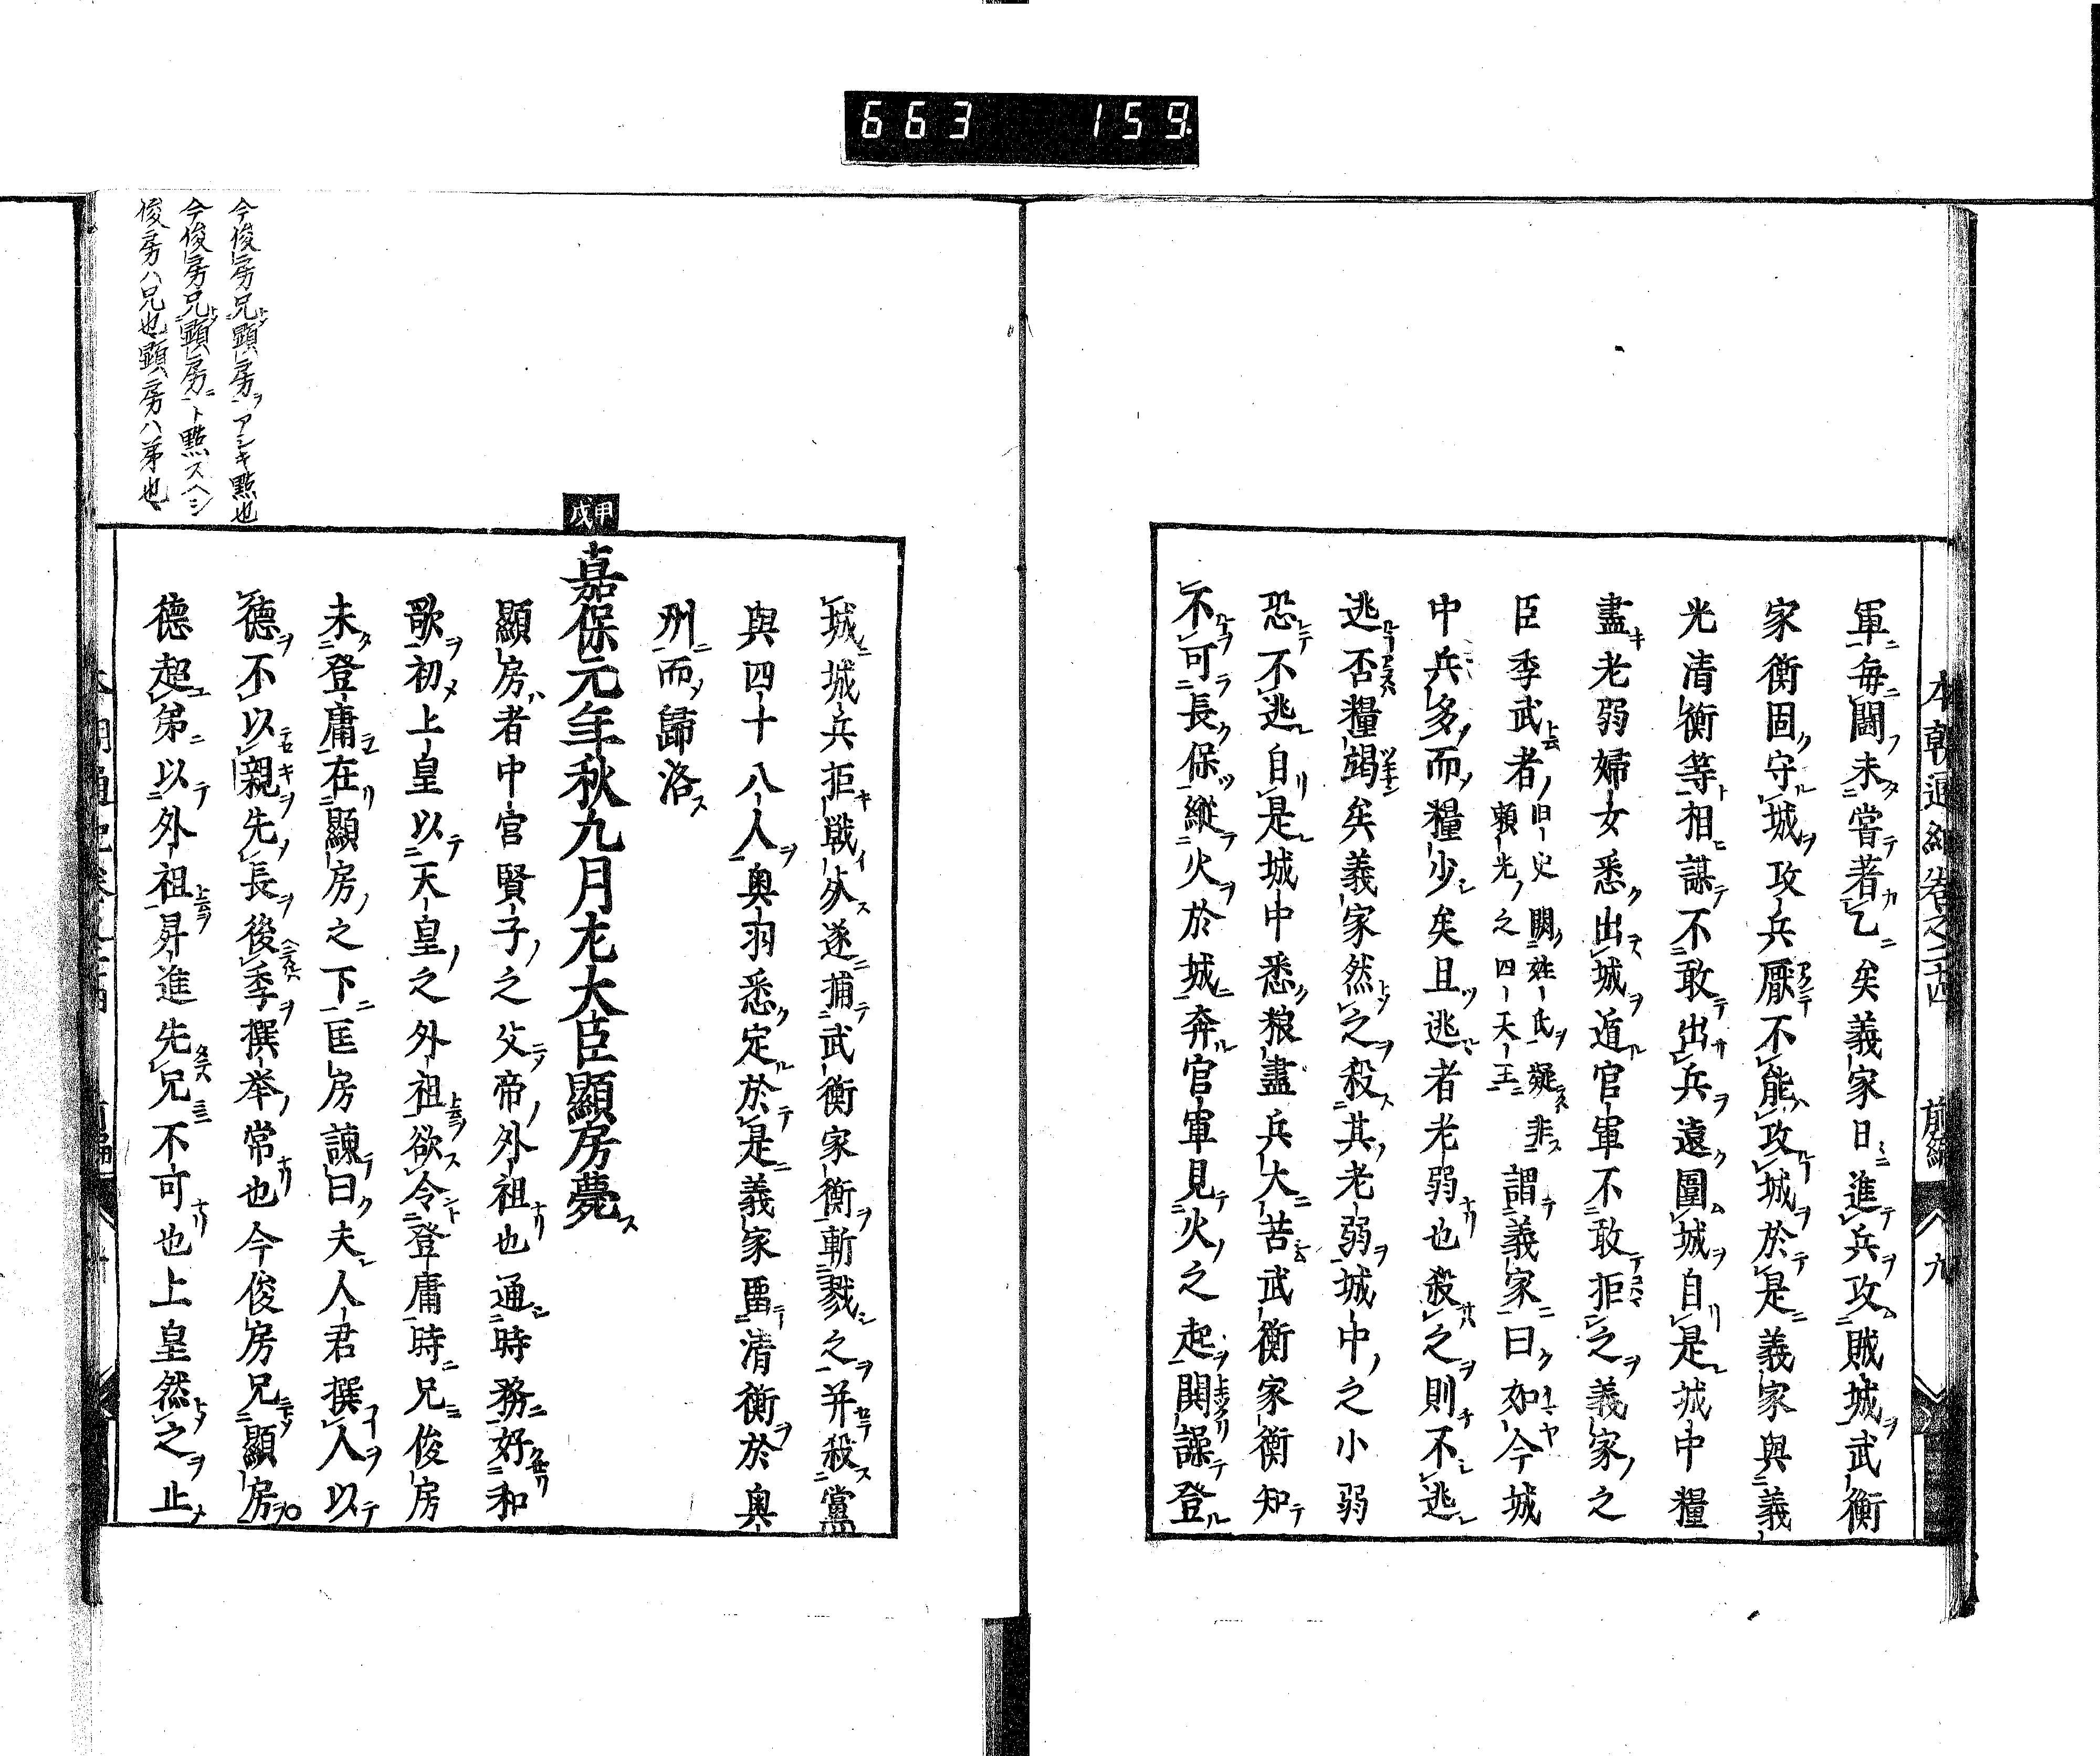 663 159
本朝通紀卷之二十四 前編 九
軍每鬪未嘗著乙矣義家日進兵攻賊城武衡
家衡固守城攻兵厭不能攻城於是義家與義
光清衡等相謀不敢出兵遠圍城自是城中糧
盡老弱婦女悉出城遁官軍不敢拒之義家之
臣季武者旧史闕姓氏疑非頼光之四天王謂義家曰如今城
中兵多而糧少矣且逃者老弱也殺之則不逃
逃否糧竭矣義家然之殺其老弱城中之小弱
恐不逃自是城中悉粮盡兵大苦武衡家衡知
不可長保縱火於城奔官軍見火之起鬨譟登
城城兵拒戦以遂捕武衡家衡斬戮之并殺黨
與四十八人奥羽悉定於是義家畱清衡於奥
刕而歸洛
甲戌
嘉保元年秋九月尤大臣顯房薨
顯房者中宮賢子之父帝外祖也通時務好和
歌初上皇以天皇之外祖欲令登庸時兄俊房
未登庸在顯房之下匡房諫曰夫人君撰人以
德不以親先長後季撰举常也今俊房兄顯房
德超弟以外祖昇進先兄不可也上皇然之止
今俊房兄顯房ヲアシキ點也
今俊房兄顯房ニト點スヘシ
俊房ハ兄也顯房ハ弟也